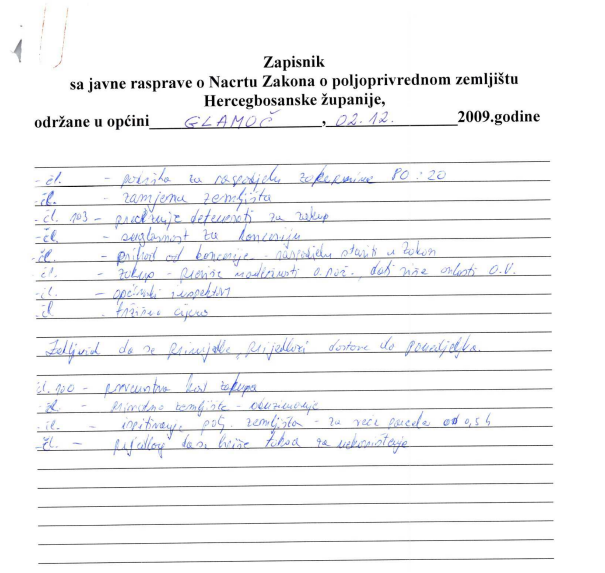 Zapisnik
sa javne rasprave o Nacrtu Zakona o poljoprivrednom zemljištu
Hercegbosanske županije,
održane u općini GLAMOČ, 02.12. 2009.godine
- čl. - podrška za raspodjelu 80:20
- čl. - zamjenu zemljišta
- čl. 103 - za zakup
- čl. - suglasnost za koncesiju
- čl. - prihod od koncesije - raspodjelu staviti u Zakon
- čl. - zakup - previše nadležnosti dati više ovlasti O.V.
- čl. - općinski inspektori
- čl. - tržišna cijena
da se primjedbe, prijedlozi dostave do ponedjeljka.
čl. 100 - prvenstvo kod zakupa
- čl. - privredno zemljište - oduzimanje
- čl. - ispitivanje polj. zemljišta - za veće od 0,5 h
- čl. - prijedlog da se briše taksa za nekorištenje